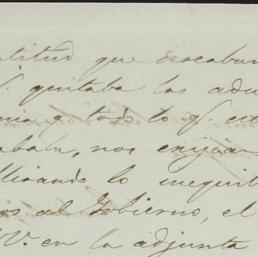 titud que descabur
quitaba las adu
nia q. todo lo q. est
cabala, nos exijian
llisando lo inequit
os al Gobierno, el
V. en la adjunta